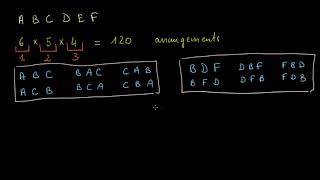 A B C D E F
6 × 5 × 4 = 120 arrangements
1 2 3
A B C B A C C A B
A C B B C A C B A
B D F D B F F B D
B F D D F B F D B